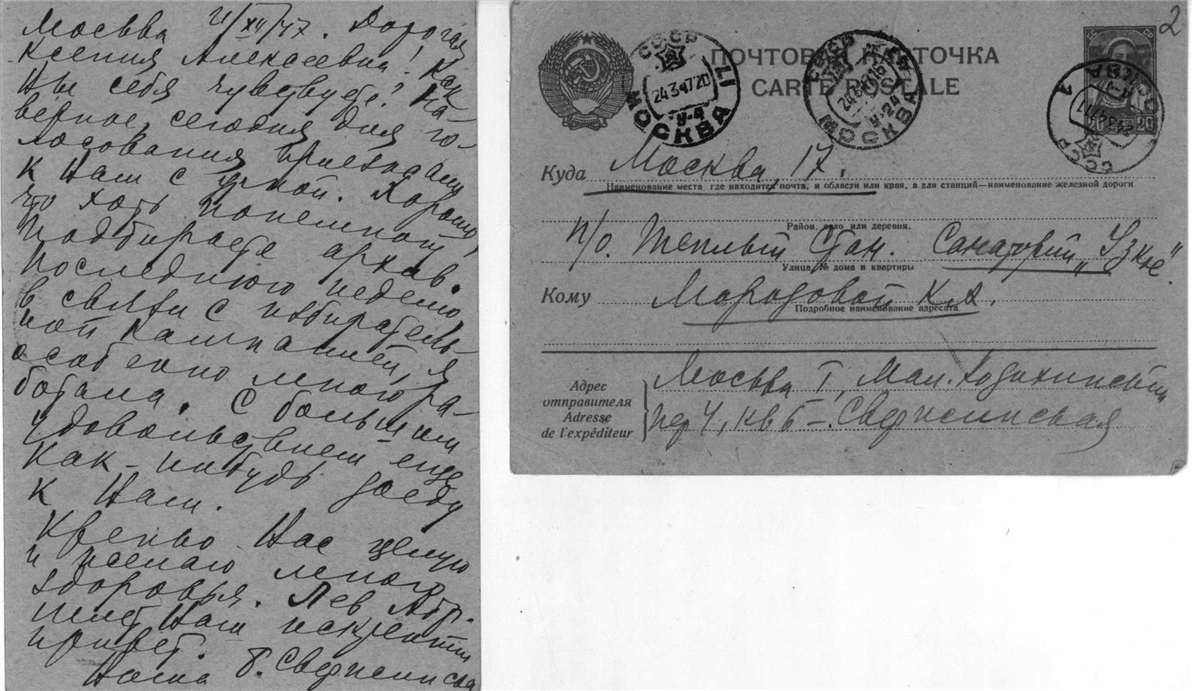 Москва 21/XII/47. Дорогая
Ксения Алексеевна! Как
Вы себя чувствуете? На-
верное сегодня для го-
лосования приезжали
к Вам с урной. Хорошо,
что хоть понемногу
подбираете архив.
Последнюю неделю
в связи с избиратель-
ной кампанией, я
особенно много ра-
ботала. С большим
удовольствием еще
как-нибудь доеду
к Вам.
Крепко Вас целую
и желаю много
здоровья. Лев Абр.
шлет Вам искренний
привет.
Ваша Б. Сверженская
2
ПОЧТОВАЯ КАРТОЧКА
CARTE POSTALE
СССР
24.3.47.20
МОСКВА 17
СССР
МОСКВА
СССР
МОСКВА
Куда Москва, 17.
Наименование места, где находится почта, и области или края, а для станций—наименование железной дороги
Район, село или деревня.
п/о. Теплый Стан. Санаторий „Узкое"
Улица, № дома и квартиры
Кому Мороозовой К.А.
Подробное наименование адресата
Адрес
отправителя
Adresse
de l'expéditeur
Москва I, Мал. Козихинский
пер 4, кв 6 –. Сверженская